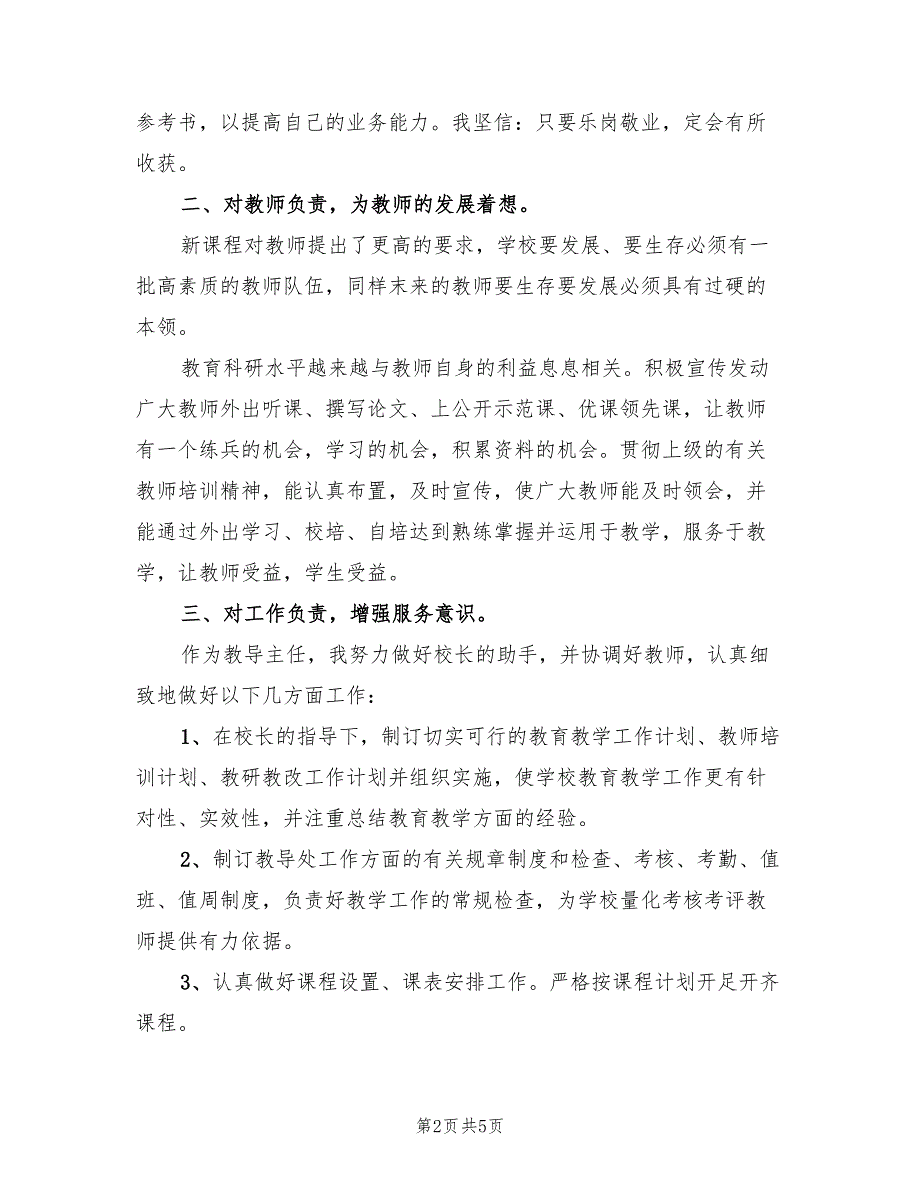 参考书，以提高自己的业务能力。我坚信：只要乐岗敬业，定会有所
收获。
二、对教师负责，为教师的发展着想。
新课程对教师提出了更高的要求，学校要发展、要生存必须有一
批高素质的教师队伍，同样末来的教师要生存要发展必须具有过硬的
本领。
教育科研水平越来越与教师自身的利益息息相关。积极宣传发动
广大教师外出听课、撰写论文、上公开示范课、优课领先课，让教师
有一个练兵的机会，学习的机会，积累资料的机会。贯彻上级的有关
教师培训精神，能认真布置，及时宣传，使广大教师能及时领会，并
能通过外出学习、校培、自培达到熟练掌握并运用于教学，服务于教
学，让教师受益，学生受益。
三、对工作负责，增强服务意识。
作为教导主任，我努力做好校长的助手，并协调好教师，认真细
致地做好以下几方面工作：
1、在校长的指导下，制订切实可行的教育教学工作计划、教师培
训计划、教研教改工作计划并组织实施，使学校教育教学工作更有针
对性、实效性，并注重总结教育教学方面的经验。
2、制订教导处工作方面的有关规章制度和检查、考核、考勤、值
班、值周制度，负责好教学工作的常规检查，为学校量化考核考评教
师提供有力依据。
3、认真做好课程设置、课表安排工作。严格按课程计划开足开齐
课程。
第2页 共5页